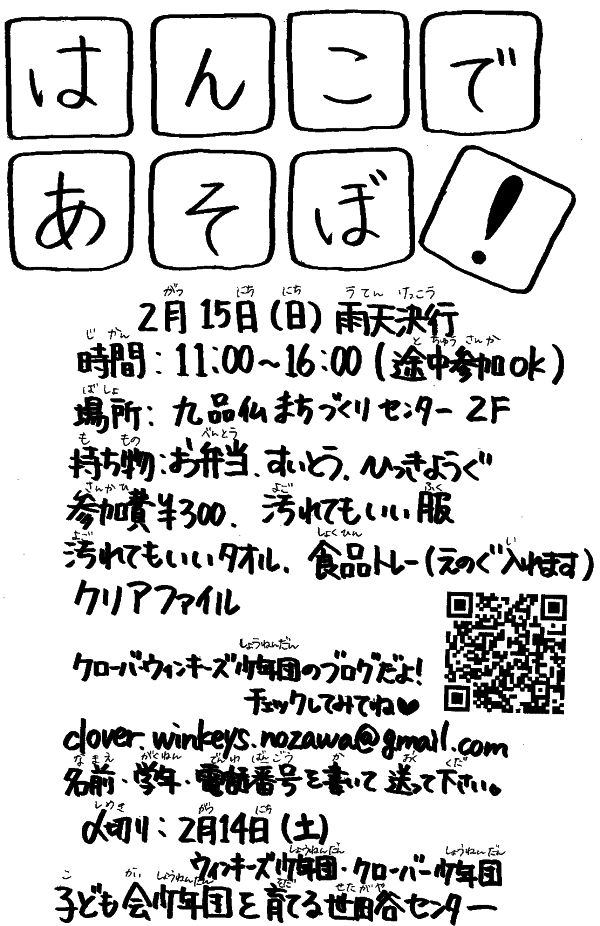 はんこで
あそぼ！
2月15日（日）雨天決行
時間：11:00～16:00（途中参加OK）
場所：九品仏まちづくりセンター 2F
持ち物：お弁当、すいとう、ひっきようぐ
参加費¥300、汚れてもいい服
汚れてもいいタオル、食品トレー（えのぐ入れます）
クリアファイル
クローバー・ウィンキーズ少年団のブログだよ！
チェックしてみてね♥
clover.winkeys.nozawa@gmail.com
名前・学年・電話番号を書いて送って下さい。
〆切り：2月14日（土）
ウィンキーズ少年団・クローバー少年団
子ども会少年団を育てる世田谷センター